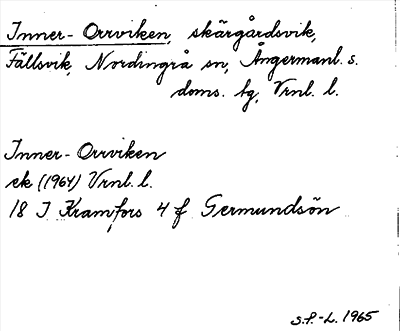 Inner-Orrviken, skärgårdsvik,
Fällsvik, Nordingrå sn, Ångermanl. s.
doms. tg, Vrnl. l.
Inner-Orrviken
ek (1964) Vrnl. l.
18 J Kramfors 4 f Germundsön
S.P.-L. 1965